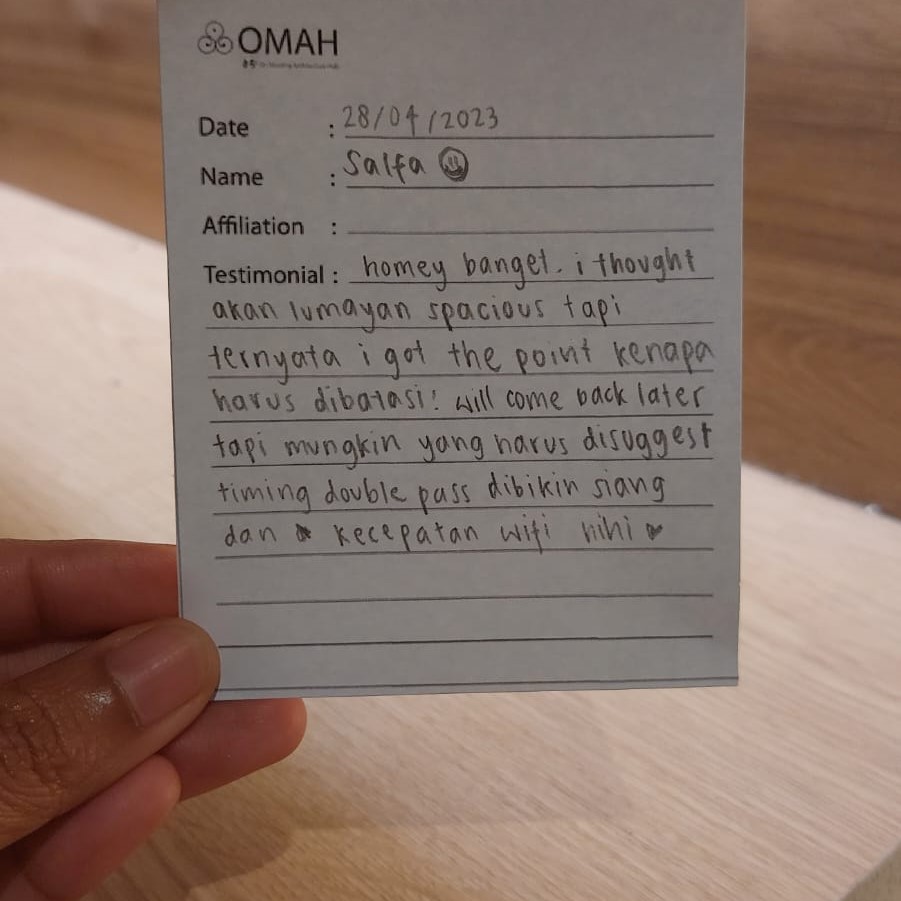 OMAH
Date : 28/04/2023
Name : Salfa
Affiliation :
Testimonial : homey banget. i thought
akan lumayan spacious tapi
ternyata i got the point kenapa
harus dibatasi! will come back later
tapi mungkin yang harus disuggest
timing double pass dibikin siang
dan kecepatan wifi hihi